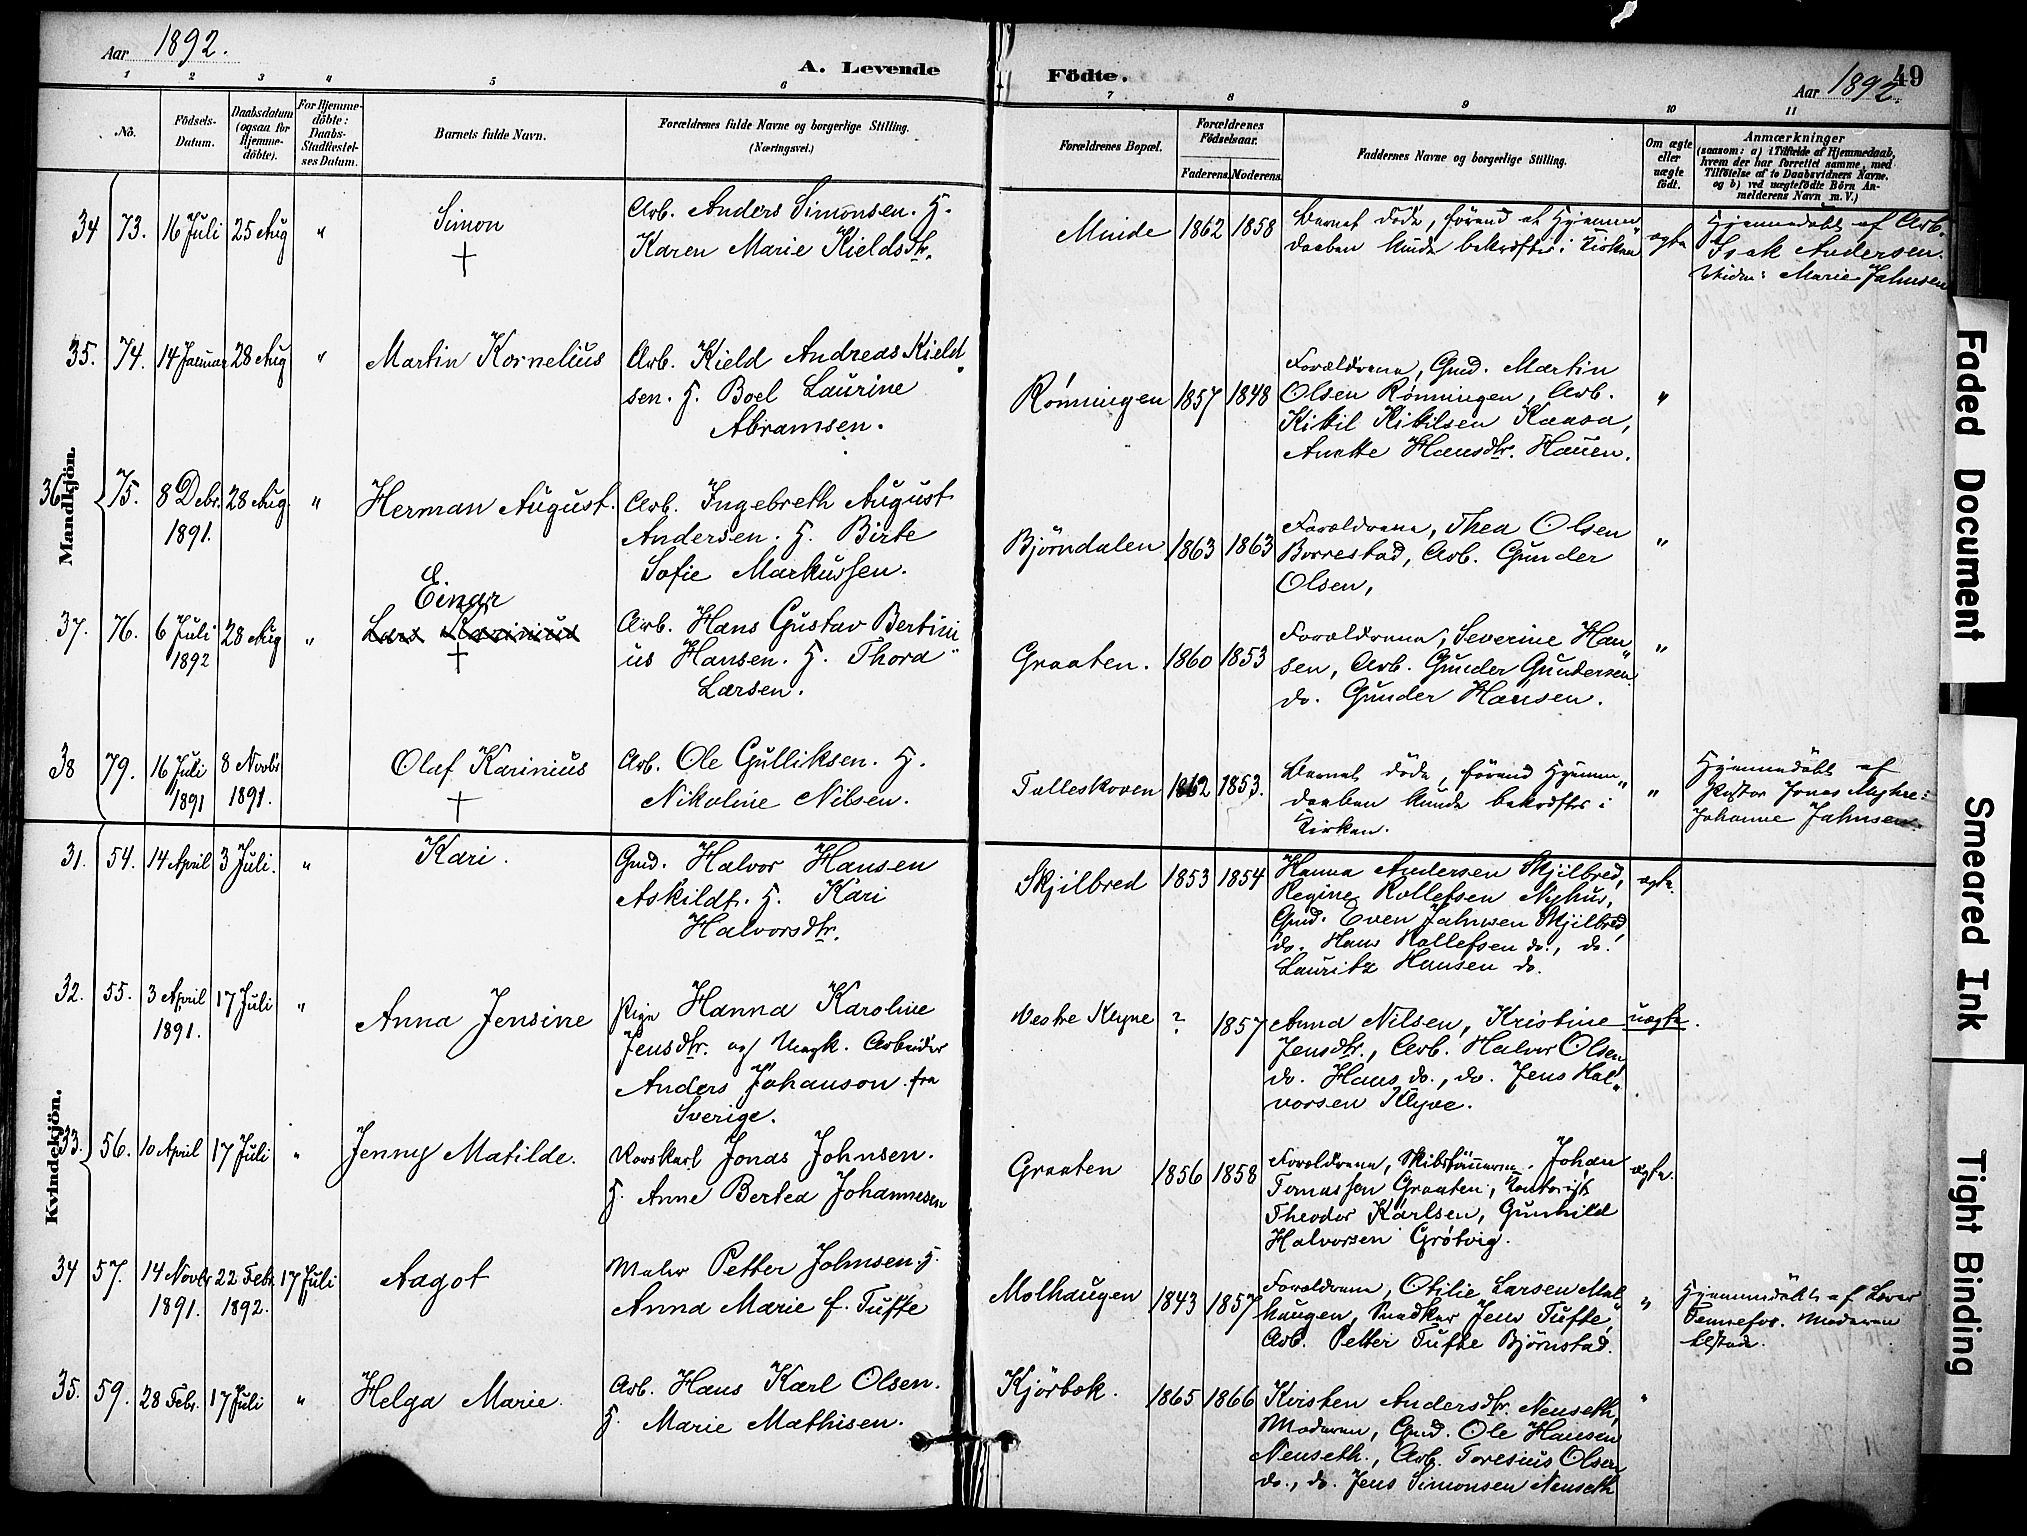 Aar 1892.
A. Levende Födte.
Aar 1892.
49
1 2 3 4 5 6 7 8 9 10 11
No.
Födsels-
Datum.
Daabsdatum
(ogsaa for
Hjemme-
döbte).
For Hjemme-
döbte:
Daabs-
Stadfæstel-
ses Datum.
Barnets fulde Navn.
Forældrenes fulde Navne og borgerlige Stilling.
(Næringsvei.)
Forældrenes Bopæl.
Forældrenes
Födselsaar.
Faderens. Moderens.
Faddernes Navne og borgerlige Stilling.
Om ægte
eller
uægte
födt.
Anmærkninger
(saasom: a) i Tilfælde af Hjemmedaab,
hvem der har forrettet samme, med
Tilföielse af to Daabsvidners Navne.
og b) ved uægtefödte Börn An-
melderens Navn m. V.)
Mandkjön.
34 73. 16 Juli 25 Aug " Simon †
Arb. Anders Simonsen. H.
Karen Marie Kieldsdtr.
Minde 1862 1858
Barnet døde, førend at Hjemme„
daaben kunde bekræftes i Kirken
ægte
Hjemmedøbt af Arb.
Isak Andersen.
Vidne: Marie Jahnsen
35. 74. 14 Januar 28 Aug " Martin Kornelius
Arb. Kield Andreas Kield„
sen. H. Boel Laurine
Abramsen.
Rønningen 1857 1848
Forældrene, Gmd. Martin
Olsen Rønningen, Arb.
Kittil Kittilsen Kaasa,
Anette Hansdtr. Hauen.
"
36. 75. 8 Debr. 1891. 28 Aug. " Herman August.
Arb. Ingebreth August
Andersen. H. Birte
Sofie Markussen.
Bjørndalen 1863 1863
Forældrene, Thea Olsen
Borrestad, Arb. Gunder
Olsen,
"
37. 76. 6 Juli 1892 28 Aug " Einar
Lars Karinius †
Arb. Hans Gustav Bertini„
us Hansen. H. Thora
Larsen.
Graaten. 1860 1853
Forældrene, Severine Han„
sen, Arb. Gunder Gundersen
do. Gunder Hansen.
"
38 79. 16 Juli 1891 8 Novbr 1891. Olaf Karinius †
Arb. Ole Gulliksen. H.
Nikoline Nilsen.
Talleskoven 1862 1853.
Barnet døde, førend Hjemme„
daaben kunde bekræftes i
Kirken.
"
Hjemmedøbt af
Pastor Jonas Myhre:
Johanne Jahnsen.
Kvindekjön.
31. 54. 14 April 3 Juli. " Kari.
Gmd. Halvor Hansen
Askildt. H. Kari
Halvorsdtr.
Skjilbred 1853 1854
Hanna Andersen Skjilbred,
Regine Rollefsen Nyhus,
Gmd. Even Jahnsen Skjilbred,
do. Hans Rollefsen do., do.
Lauritz Hansen do.
ægte.
32. 55. 3 April 1891. 17 Juli " Anna Jensine
Pige Hanna Karoline
Jensdtr. og Ungk. Arbeider
Anders Johanson fra
Sverige.
Vestre Klyve ? 1857
Anna Nilsen, Kristine
Jensdtr., Arb. Halvor Olsen,
do. Hans do., do. Jens Hal„
vorsen Klyve.
uægte.
33. 56. 10 April 17 Juli " Jenny Matilde.
Jonas Johnsen.
H. Anne Bertea Johannesen
Graaten 1856 1858
Forældrene, Johan
Tomassen Graaten, Kontorist
Theodor Karlsen, Gunhild
Halvorsen Grøtvig.
ægte.
34 57. 14 Novbr 1891. 22 Febr. 1892. 17 Juli Aagot
Maler Petter Johnsen. H.
Anna Marie f. Tufte
Molhaugen 1843 1857
Forældrene, Otilie Larsen Mol„
haugen, Snedker Jens Tufte,
Arb. Petter Tufte Bjørnstad.
"
Hjemmedøbt af Lærer
Tennefos. Moderen
tilstede.
35. 59. 28 Febr. 17 Juli " Helga Marie.
Arb. Hans Karl Olsen.
H. Marie Mathisen.
Kjørbæk. 1865 1866
Kirsten Andersdtr. Nenseth,
Moderen, Gmd. Ole Hansen
Nenseth., Arb. Toresius Olsen
do., do. Jens Simonsen Nenseth
"
Faded Document
Smeared Ink
Tight Binding